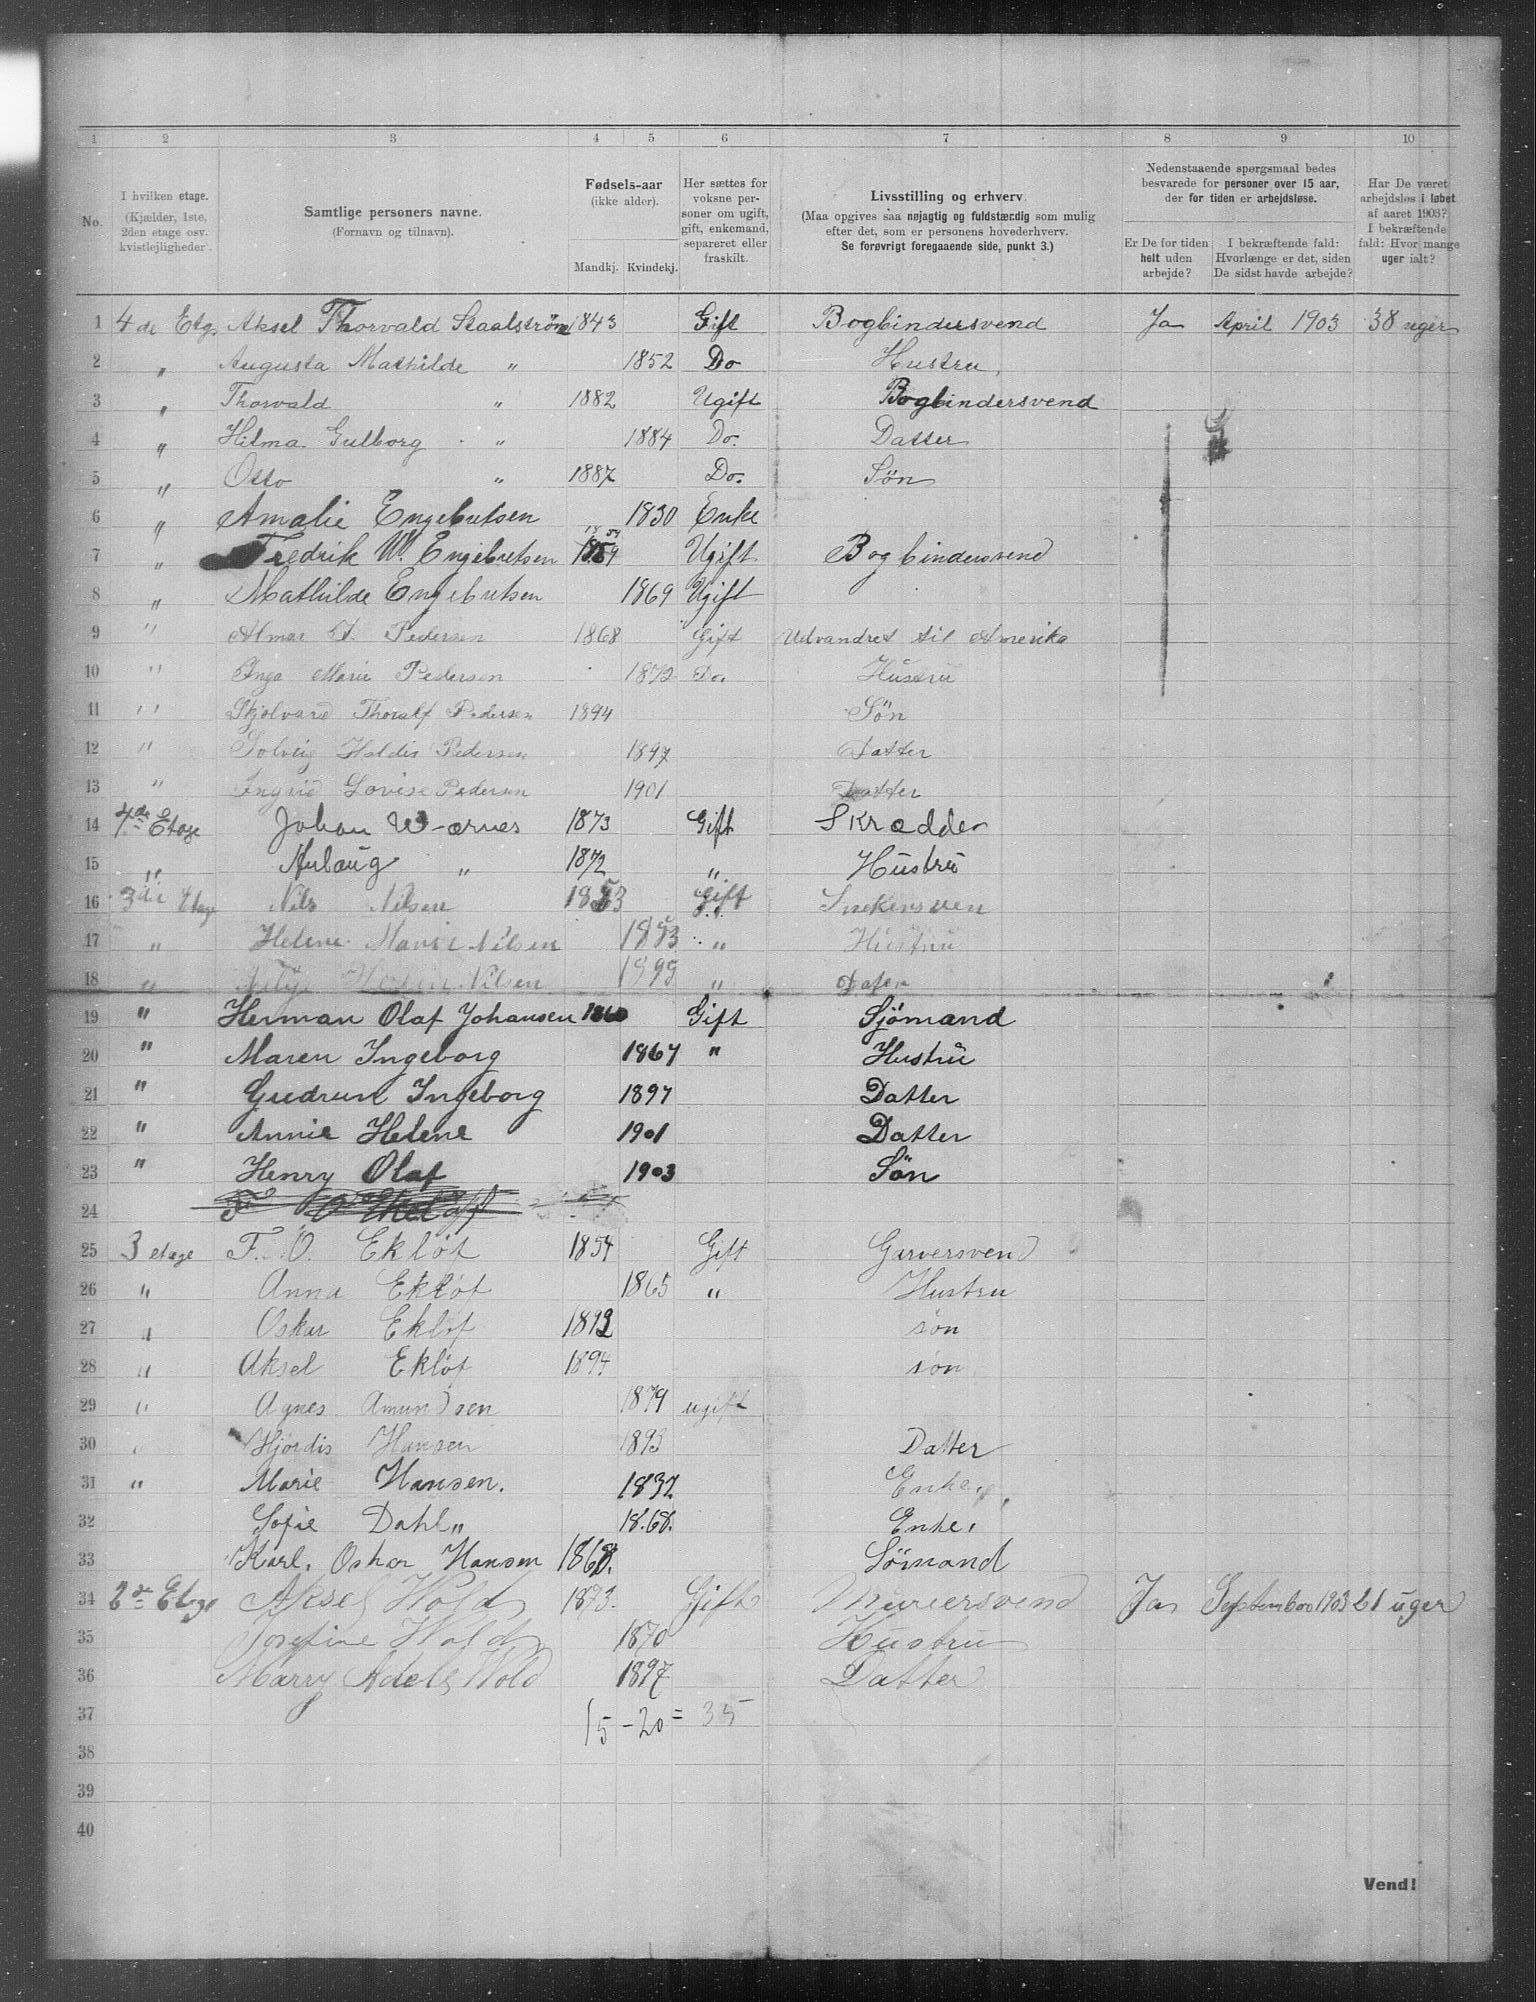 1 2 3 4 5 6 7 8 9 10
No.
I hvilken etage.
(Kjælder, 1ste,
2den etage osv.
kvistlejligheder).
Samtlige personers navne.
(Fornavn og tilnavn).
Fødsels-aar
(ikke alder).
Mandkj. Kvindekj.
Her sættes for
voksne per-
soner om ugift,
gift, enkemand,
separeret eller
fraskilt.
Livsstilling og erhverv.
(Maa opgives saa nøjagtig og fuldstændig som mulig
efter det, som er personens hovederhverv.
Se forøvrigt foregaaende side, punkt 3.)
Nedenstaaende spørgsmaal bedes
besvarede for personer over 15 aar,
der for tiden er arbejdsløse.
Er De for tiden
helt uden
arbejde?
I bekræftende fald:
Hvorlænge er det, siden
De sidst havde arbejde?
Har De været
arbejdsløs i løbet
af aaret 1903?
I bekræftende
fald: Hvor mange
uger ialt?
1 4de Etg. Aksel Thorvald Staalstrøm 1843 Gift Bogbindersvend Ja April 1903 38 uger
2 " Augusta Mathilde " 1852 Do Hustru.
3 " Thorvald " 1882 Ugift Bogbindersvend
4 " Hilma Gulborg " 1884 Do. Datter
5 " Otto " 1887 Do. Søn
6 " Amalie Engebretsen 1830 Enke
7 " Fredrik W. Engebretsen Ugift Bogbindersvend
8 " Mathilde Engebretsen 1869 Ugift
9 " Almar Pedersen 1868 Gift Udvandret til Amerika
10 " Inga Marie Pedersen 1872 Do. Hustru
11 " Skjolvard Thoralf Pedersen 1894 Søn
12 " Solveig Haldis Pedersen 1897 Datter
13 " Ingrid Lovise Pedersen 1901 Datter
14 4de Etage Johan Wærnes 1873 Gift Skrædder
15 " Aulaug " 1872 " Hustru
16 3die Etage Nils Nilsen Gift Snekersven
17 " Helene Marie Nilsen " Hustru
18 " Nilsen 1899 " Dater
19 " Herman Olaf Johansen 1860 Gift Sjömand
20 " Maren Ingeborg 1867 " Hustru
21 " Gudrun Ingeborg 1897 Datter
22 " Annie Helene 1901 Datter
23 " Henry Olaf 1903 Søn
24
25 3 etage F. O. Ekløf 1854 Gift Garversvend
26 " Anna Ekløf 1865 " Hustru
27 " Oskar Ekløf 1892 søn
28 " Aksel Ekløf 1894 søn
29 " Agnes Amundsen 1879 ugift
30 " Hjørdis Hansen 1893 Datter
31 " Marie Hansen. 1832 Enke.
32 Sofie Dahl " 1868. Enke.
33 Karl. Oskar Hansen 1868. Sömand
34 2de Etage Aksel Wold 1873. Gift Murersvend Ja September 1903 21 uger
35 Josefine Wold 1870 Hustru
36 Marry Adele Wold 1897 Datter
37 15 - 20 = 35
38
39
40
Vend!